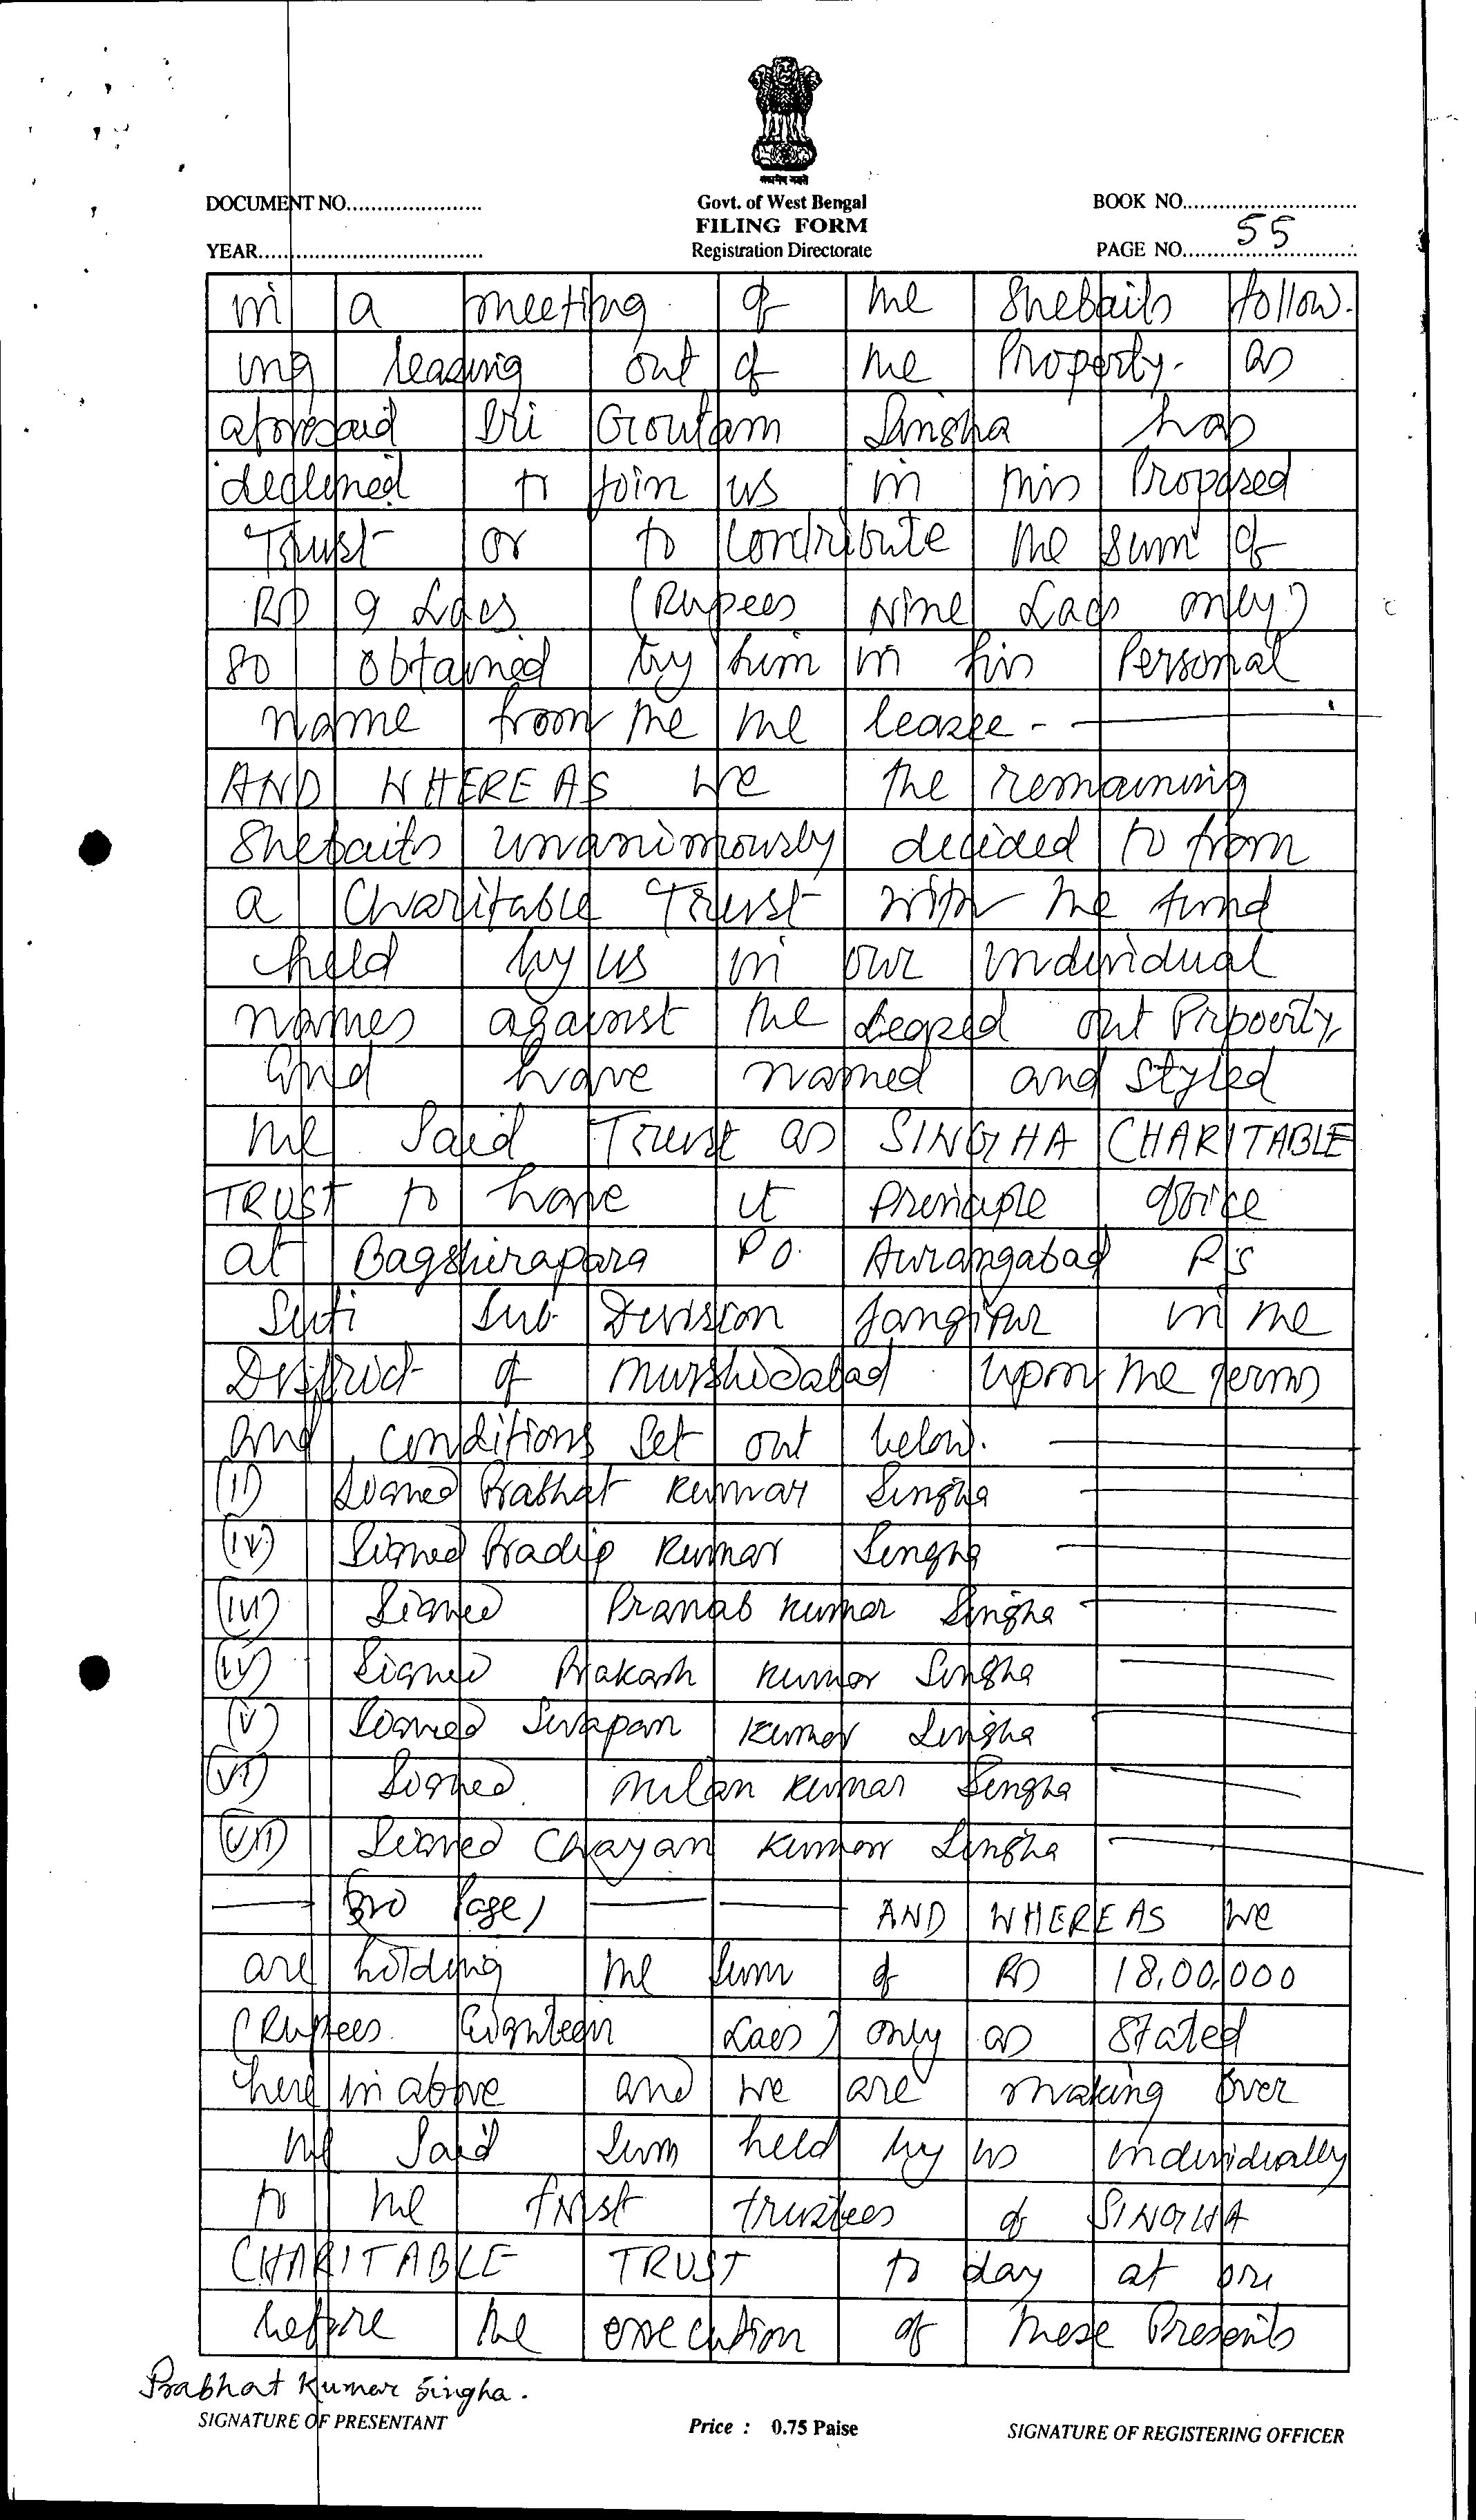 सत्यमेव जयते
DOCUMENT NO......................
Govt. of West Bengal
BOOK NO............................
FILING FORM
YEAR.....................................
Registration Directorate
PAGE NO. 55
in a meeting of the Shebaits follow-
ing leasing out of the Property. as
aforesaid Sri Goutam Singha has
declined to join us in this Proposed
Trust or to contribute the sum of
Rs 9 Lacs (Rupees Nine Lacs only)
so obtained by him in his Personal
name from the the leasee -
AND WHEREAS we the remaining
Shebaits unanimously decided to from
a Charitable Trust with the fund
held by us in our individual
names against the Leased out Prpoerty,
and have named and styled
the Said Trust as SINGHA CHARITABLE
TRUST to have it principle office
at Bagshirapara P.O. Aurangabad P.S
Suti Sub. Division Jangipur in the
District of Murshidabad upon the terms
and conditions Set out below.
Signed Prabhat Kumar Singha
Signed Pradip Kumar Singha
Signed Pranab Kumar Singha
Signed Prakash Kumar Singha
(V) Signed Swapan Kumar Singha
(VI) Signed Milan Kumar Singha
(VII) Signed Chayan Kumar Singha
Page) AND WHEREAS we
are holding the Sum of Rs 18,00,000
(Rupees Eighteen Lacs) only as stated
here in above and we are making over
the Said Sum held by us individually
to the first trustees of SINGHA
CHARITABLE TRUST to day at or
before the execution of these Presents
Prabhat Kumar Singha.
SIGNATURE OF PRESENTANT
Price : 0.75 Paise
SIGNATURE OF REGISTERING OFFICER